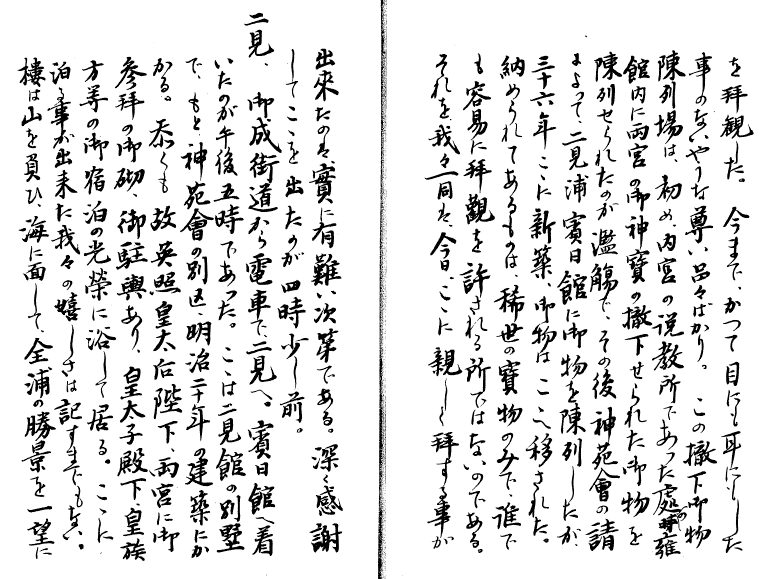 を拝観した。今まで、かつて目にも耳にもした
事のないやうな尊い品々ばかり。この撤下御物
陳列場は、初め、内宮の説教所であった處、時雍
館内に両宮の御神寶の撤下せられた御物を
陳列せられたのが濫觴で、その後神苑會の請
によって、二見浦賓日館に御物を陳列したが、
三十六年ここに新築、御物はここへ移された。
納められてあるものは、稀世の寶物のみで、誰で
も容易に拝觀を許される所ではないのである。
それを、我々一同は、今日、ここに親しく拜する事が
出來たのは、實に有難い次第である。深く感謝
してここを出たのが四時少し前。
二見、御成街道から電車で、二見へ。賓日館へ着
いたのが午後五時であった。ここは二見館の別墅
で、もと神苑會の別區、明治二十年の建築にか
かる。忝くも故英照皇太后陛下、両宮に御
参拝の御砌、御駐輿あり、皇太子殿下、皇族
方等の御宿泊の光榮に浴して居る。ここに
泊る事が出来た我々の嬉しさは記すまでもない。
樓は山を負ひ、海に面して、全浦の勝景を一望に